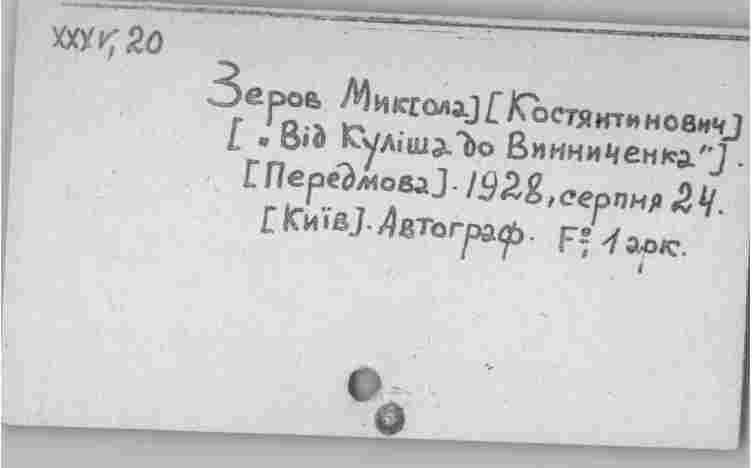 XXXV, 20
Зеров Микола] [Костянтинович]
[„Від Куліша до Винниченка"].
[Передмова]. 1928, серпня 24.
[Київ]. Автограф. F°; 1 арк.